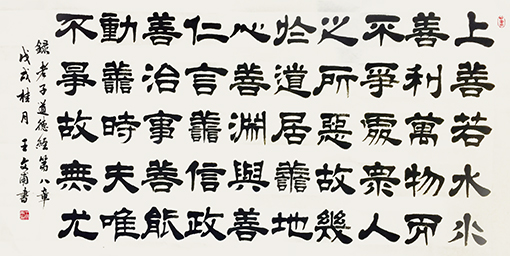 上善若水水
善利萬物而
不爭處眾人
之所惡故幾
於道居善地
心善淵與善
仁言善信政
善治事善能
動善時夫唯
不爭故無尤
錄老子道德經第八章
戊戌桂月 王文甫書